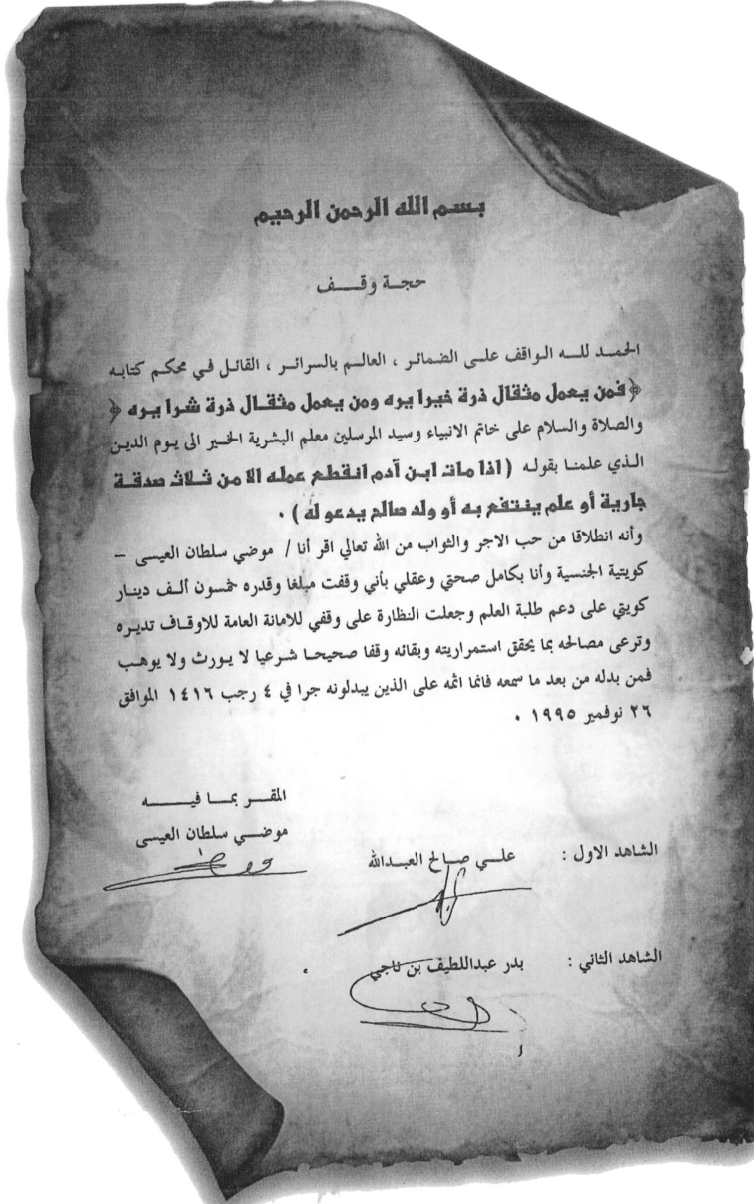 بسم الله الرحمن الرحيم
حجة وقف
الحمد لله الواقف على الضمائر ، العالم بالسرائر ، القائل في محكم كتابه
﴿ فمن يعمل مثقال ذرة خيرا يره ومن يعمل مثقال ذرة شرا يره ﴾
والصلاة والسلام على خاتم الانبياء وسيد المرسلين معلم البشرية الخير الى يوم الدين
الذي علمنا بقوله ( اذا مات ابن آدم انقطع عمله الا من ثلاث صدقة
جارية أو علم ينتفع به أو ولد صالح يدعو له ) .
وأنه انطلاقا من حب الاجر والثواب من الله تعالي اقر أنا / موضي سلطان العيسى –
كويتية الجنسية وأنا بكامل صحتي وعقلي بأني وقفت مبلغا وقدره خمسون ألف دينار
كويتي على دعم طلبة العلم وجعلت النظارة على وقفي للامانة العامة للاوقاف تديره
وترعى مصالحه بما يحقق استمراريته وبقائه وقفا صحيحا شرعيا لا يورث ولا يوهب
فمن بدله من بعد ما سمعه فانما اثمه على الذين يبدلونه جرا في ٤ رجب ١٤١٦ الموافق
٢٦ نوفمبر ١٩٩٥ .
المقر بما فيه
موضي سلطان العيسى
الشاهد الاول : علي صالح العبدالله
الشاهد الثاني : بدر عبداللطيف بن ناجي